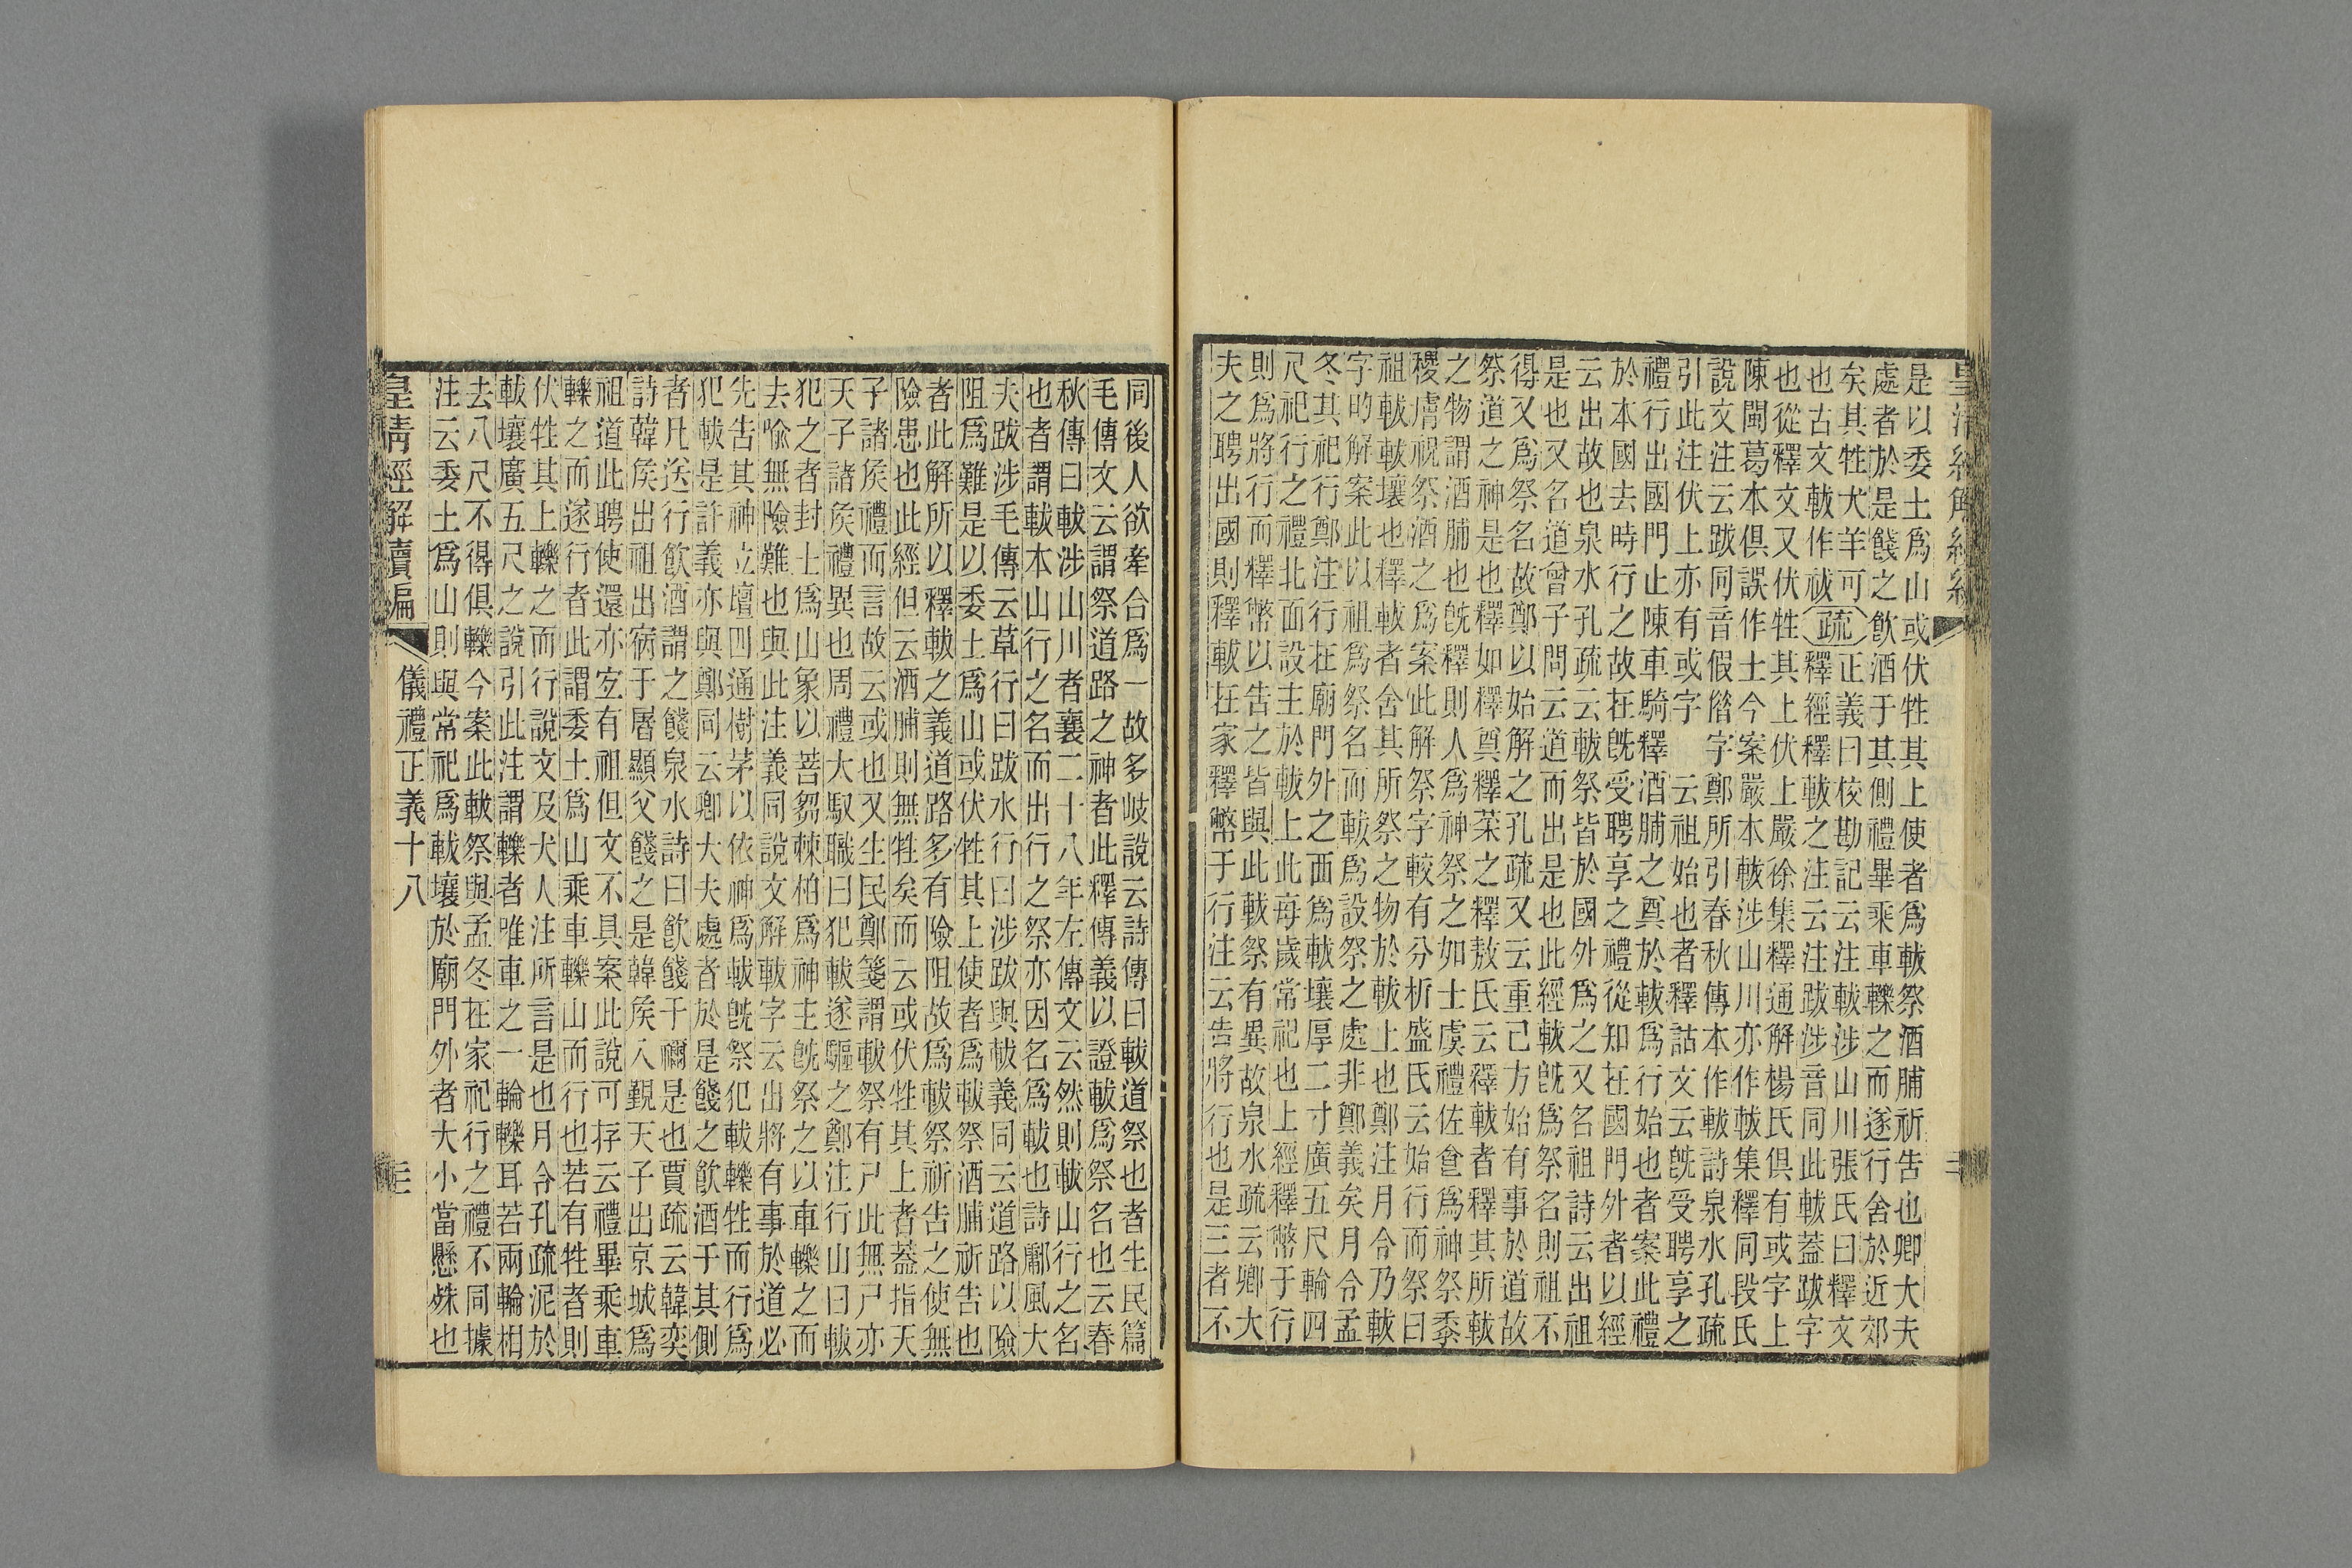 是以委土爲山或伏牲其上使者爲軷祭酒脯祈告也卿大夫
處者於是餞之飮酒于其側禮畢乘車轢之而遂行舍於近郊
矣其牲犬羊可 正義曰校勘記云注軷涉山川張氏曰釋文
也古文軷作祓疏釋經釋軷之注云注跋涉音同此軷蓋跋字
也從釋文又伏牲其上伏上嚴徐集釋通解楊氏俱有或字上
陳閩葛本俱誤作土今案嚴本軷涉山川亦作軷集釋同段氏
說文注云跋同音假借字鄭所引春秋傳本作軷詩泉水孔疏
引此注伏上亦有或字 云祖始也者釋詁文云旣受聘享之
禮行出國門止陳車騎釋酒脯之奠於軷爲行始也者案此禮
於本國去時行之故在旣受聘享之禮從知在國門外者以經
云出故也泉水孔疏云軷祭皆於國外爲之又名祖詩云出祖
是也又名道曾子問云道而出是也此經軷旣爲祭名則祖不
得又爲祭名故鄭以始解之孔疏又云重己方始有事於道故
祭道之神是也釋如釋奠釋菜之釋敖氏云釋軷者釋其所軷
之物謂酒脯也旣釋則人爲神祭之如士虞禮佐食爲神祭黍
稷膚祝祭酒之爲案此解祭字較有分析盛氏云始行而祭曰
祖軷軷壤也釋軷者舍其所祭之物於軷上也鄭注月令乃軷
字的解案此以祖爲祭名而軷爲設祭之處非鄭義矣月令孟
冬其祀行鄭注行在廟門外之西爲軷壤厚二寸廣五尺輪四
尺祀行之禮北面設主於軷上此每歲常祀也上經釋幣于行
則爲將行而釋幣以告之皆與此軷祭有異故泉水疏云卿大
夫之聘出國則釋軷在家釋幣于行注云告將行也是三者不
同後人欲牽合爲一故多岐說云詩傳曰軷道祭也者生民篇
毛傳文云謂祭道路之神者此釋傳義以證軷爲祭名也云春
秋傳曰軷涉山川者襄二十八年左傳文云然則軷山行之名
也者謂軷本山行之名而出行之祭亦因名爲軷也詩鄘風大
夫跋涉毛傳云草行曰跋水行曰涉跋與軷義同云道路以險
阻爲難是以委土爲山或伏牲其上使者爲軷祭酒脯祈告也
者此解所以釋軷之義道路多有險阻故爲軷祭祈告之使無
險患也此經但云酒脯則無牲矣而云或伏牲其上者蓋指天
子諸侯禮而言故云或也又生民鄭箋謂軷祭有尸此無尸亦
天子諸侯禮異也周禮大馭職曰犯軷遂驅之鄭注行山曰軷
犯之者封土爲山象以菩芻棘柏爲神主旣祭之以車轢之而
去喩無險難也與此注義同說文解軷字云出將有事於道必
先告其神立壇四通樹茅以依神爲軷旣祭犯軷轢牲而行爲
犯軷是許義亦與鄭同云卿大夫處者於是餞之飮酒于其側
者凡送行飮酒謂之餞泉水詩曰飮餞于禰是也賈疏云韓奕
詩韓侯出祖出宿于屠顯父餞之是韓侯入覲天子出京城爲
祖道此聘使還亦宜有祖但文不具案此說可存云禮畢乘車
轢之而遂行者此謂委土爲山乘車轢山而行也若有牲者則
伏牲其上轢之而行說文及犬人注所言是也月令孔疏泥於
軷壤廣五尺之說引此注謂轢者唯車之一輪轢耳若兩輪相
去八尺不得俱轢今案此軷祭與孟冬在家祀行之禮不同據
注云委土爲山則與常祀爲軷壤於廟門外者大小當懸殊也
皇淸經解續編 儀禮正義十八